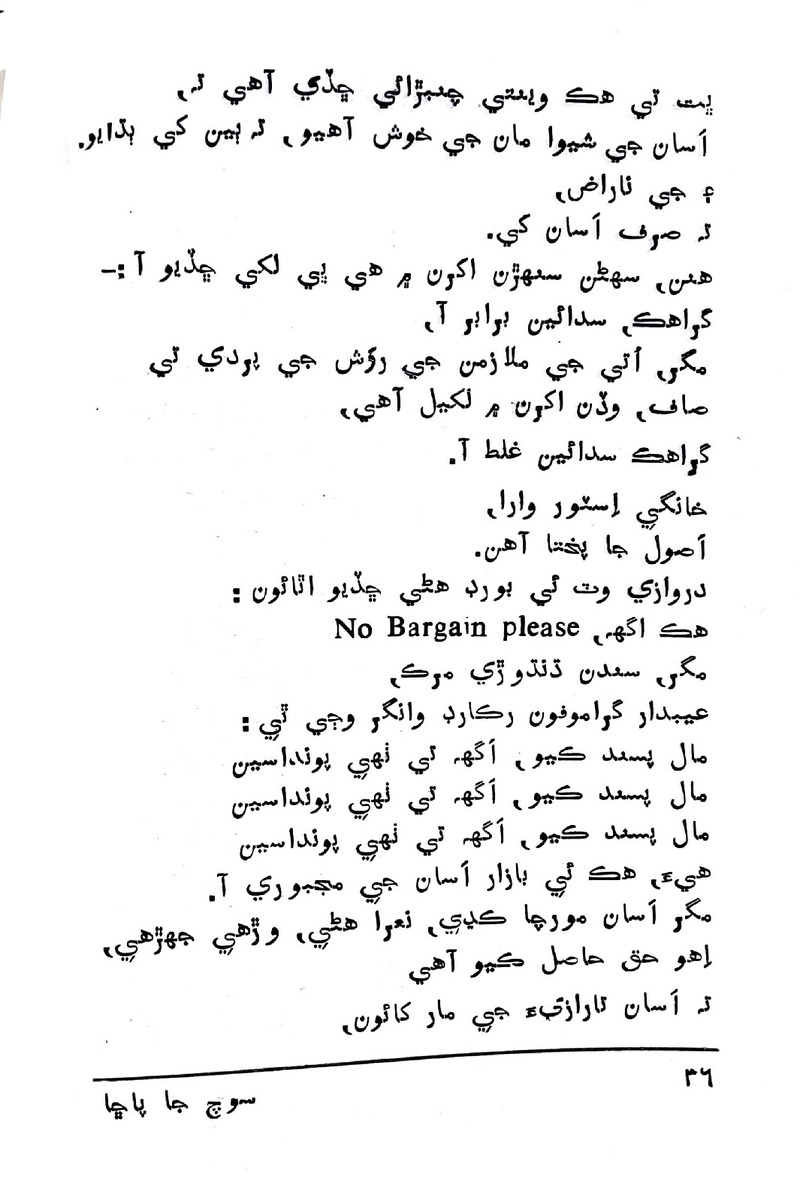 ڀت تي هڪ وينتي چنبڙائي ڇڏي آهي ته،
اَسان جي شيوا مان جي خوش آهيو، ته ٻين کي ٻڌايو.
۽ جي ناراض،
ته صرف اَسان کي.
هنن، سهڻن سنهڙن اکرن ۾ هي ڀي لکي ڇڏيو آ :ـ
گراهڪ، سدائين برابر آ،
مگر، اُتي جي ملازمن جي رؤش جي پردي تي
صاف، وڏن اکرن ۾ لکيل آهي،
گراهڪ سدائين غلط آ.
خانگي اِسٽور وارا،
اَصول جا پختا آهن.
دروازي وٽ ئي بورڊ هڻي ڇڏيو اٿائون :
هڪ اگهه، No Bargain please
مگر، سندن ڌنڌوڙي مرڪ،
عيبدار گراموفون رڪارڊ وانگر وڄي ٿي :
مال پسند ڪيو، اَگهه تي ٺهي پونداسين
مال پسند ڪيو، اَگهه تي ٺهي پونداسين
مال پسند ڪيو، اَگهه تي ٺهي پونداسين
هيءَ، هڪ ئي بازار اَسان جي مجبوري آ.
مگر اَسان مورچا ڪڍي، نعرا هڻي، وڙهي جهڙهي،
اِهو حق حاصل ڪيو آهي
ته اَسان تارازيءَ جي مار کائون،
٣٦
سوچ جا پاڇا